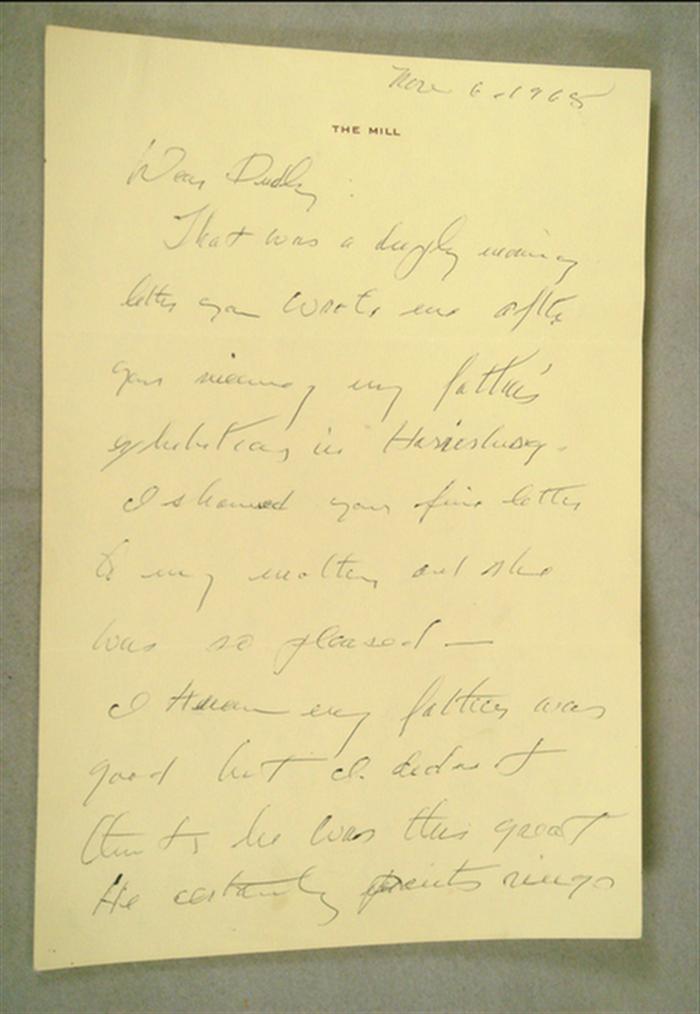 Nov 6 - 1965
THE MILL
Dear Dudley:
That was a deeply moving
letter you wrote me after
your viewing my father's
exhibition in Harrisburg.
I showed your fine letter
to my mother and she
was so pleased —
I knew my father was
good but I didn't
think he was this great
He certainly paints rings